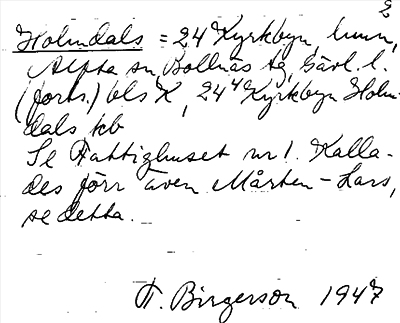 2
Holmdals = 24 Kyrkbyn, hmn,
Alfta sn, Bollnäs tg, Gävl. l.
(forts.) bls X, 24⁴ Kyrkbyn Holm-
dals kb
Se Fattighuset nr 1. Kalla-
des förr även Mårten-Lars,
se detta.
F. Birgerson 1947